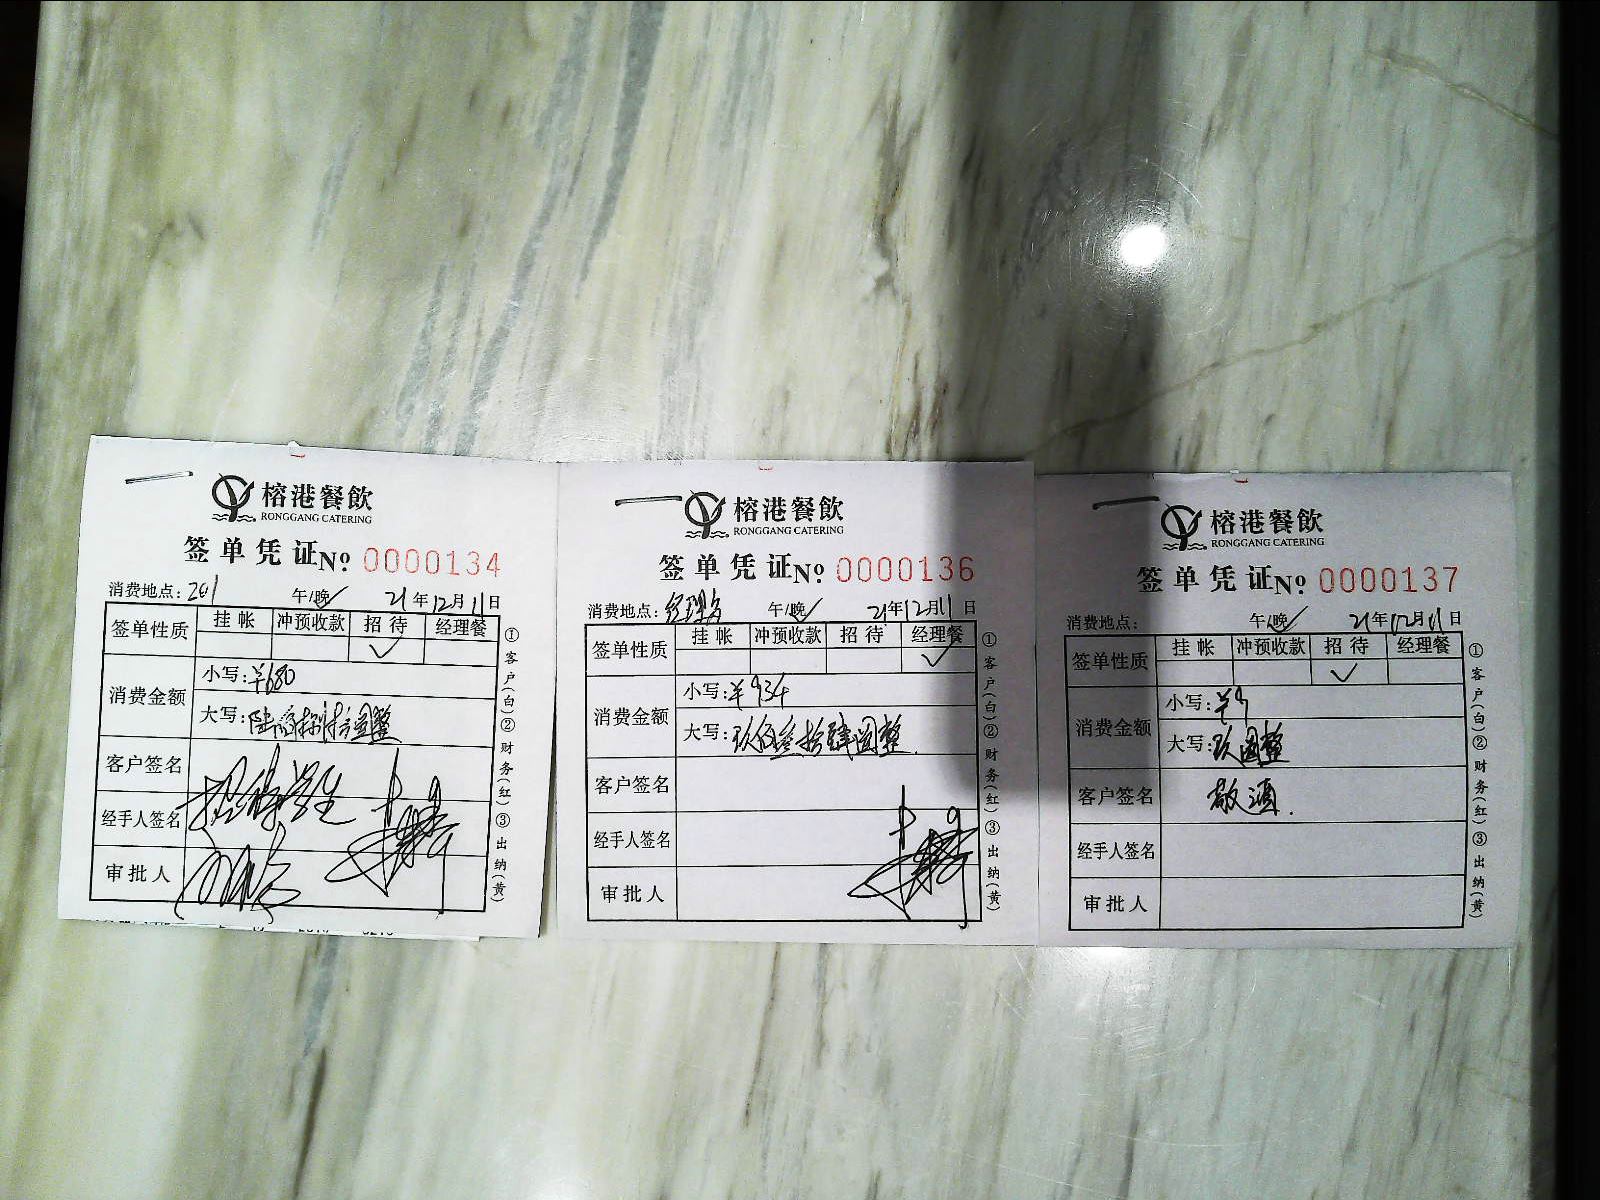 榕港餐飲
RONGGANG CATERING
签单凭证 No 0000134
消费地点: 201 午/晚✓ 21年12月11日
签单性质 挂帐 冲预收款 招待 经理餐
✓
消费金额 小写: ¥680
大写: 陆佰捌拾圆整
客户签名
经手人签名
审批人
①客户(白)②财务(红)③出纳(黄)
榕港餐飲
RONGGANG CATERING
签单凭证 No 0000136
消费地点: 经理 午/晚✓ 21年12月11日
签单性质 挂帐 冲预收款 招待 经理餐
✓
消费金额 小写: ¥934
大写: 玖佰叁拾肆圆整
客户签名
经手人签名
审批人
①客户(白)②财务(红)③出纳(黄)
榕港餐飲
RONGGANG CATERING
签单凭证 No 0000137
消费地点: 午/晚✓ 21年12月11日
签单性质 挂帐 冲预收款 招待 经理餐
✓
消费金额 小写: ¥9
大写: 玖圆整
客户签名 敬酒.
经手人签名
审批人
①客户(白)②财务(红)③出纳(黄)